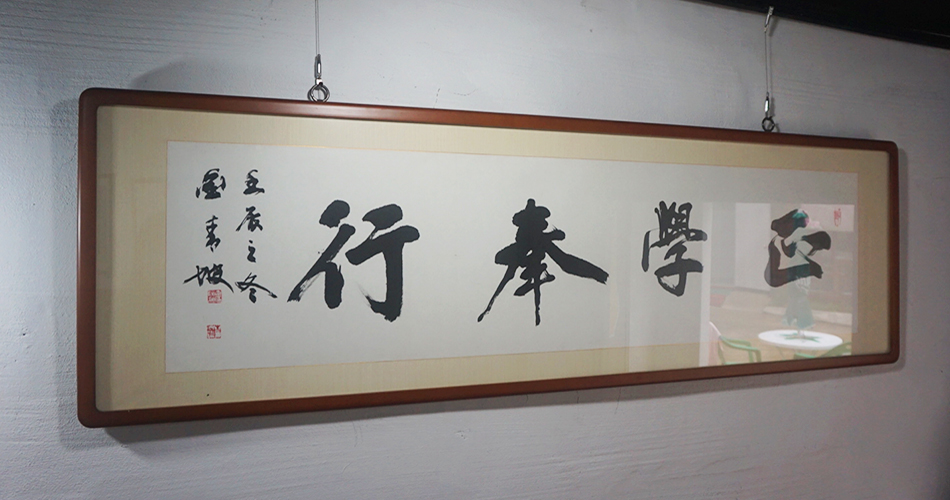 正學奉行
壬辰之冬
青坡